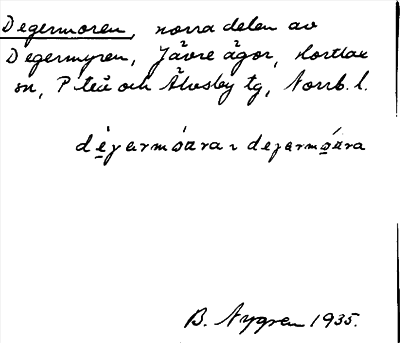 Degermoren, norra delen av
Degermyren, Jävre ägor, Hortlax
sn, Piteå och Älvsby tg, Norrb. l.
déjarmóara ~ dejarmóara
B. Nygren 1935.